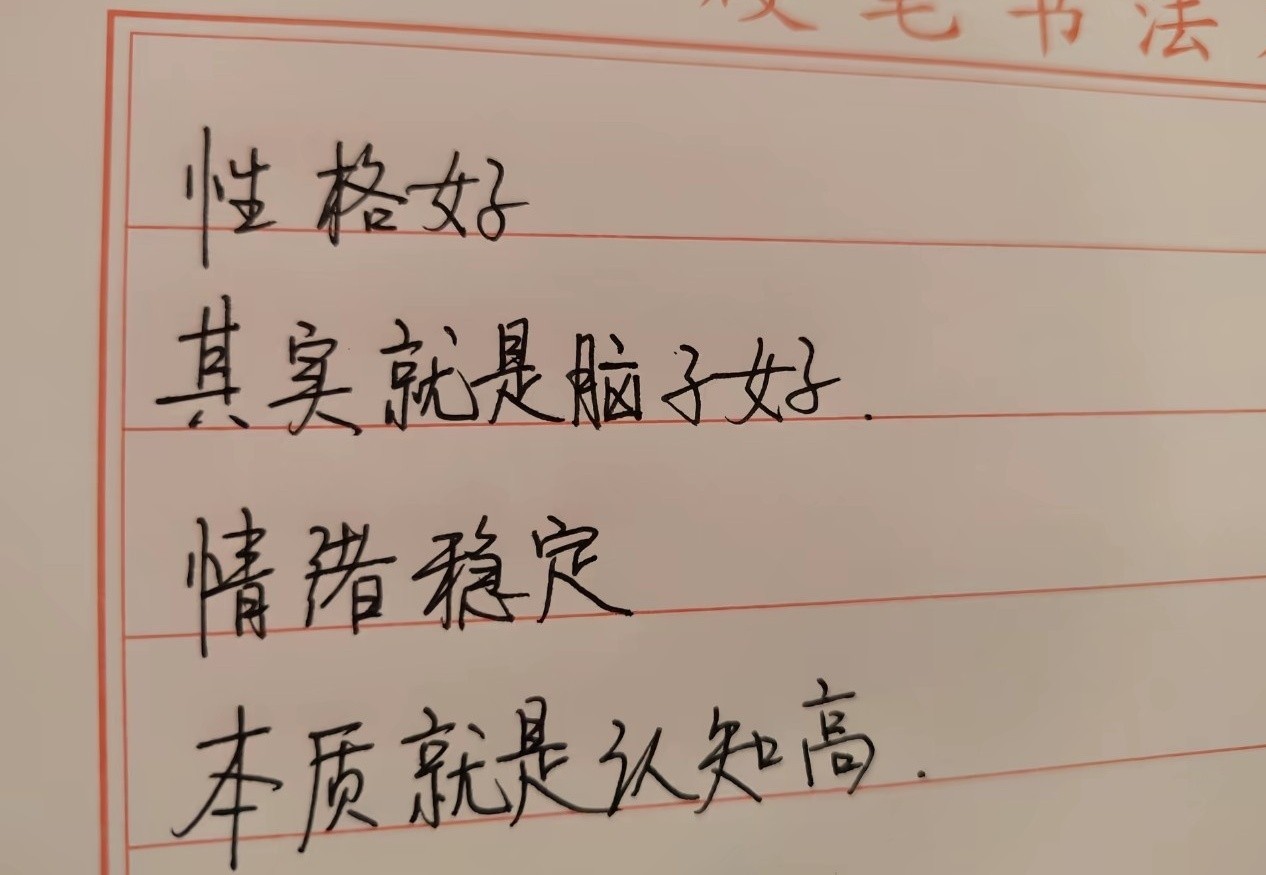 硬笔书法
性格好
其实就是脑子好.
情绪稳定
本质就是认知高.